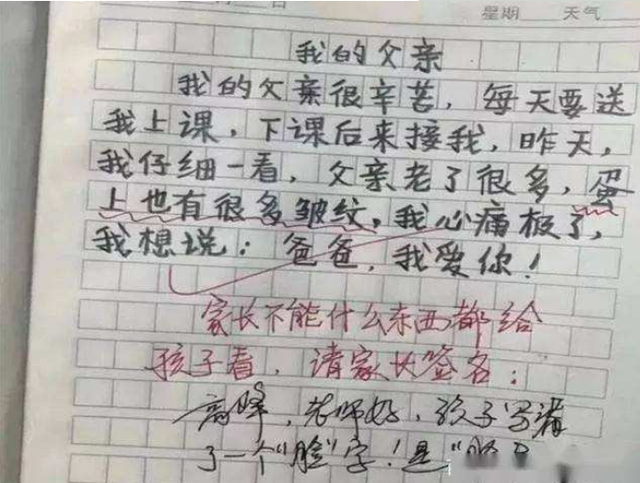 日
星期 天气
我的父亲
我的父亲很辛苦，每天要送
我上课，下课后来接我，昨天，
我仔细一看，父亲老了很多，蛋
上也有很多皱纹，我心痛极了，
我想说：爸爸，我爱你！
家长不能什么东西都给
孩子看，请家长签名：
高峰，老师好，孩子写错
了一个"脸"字！是"脸